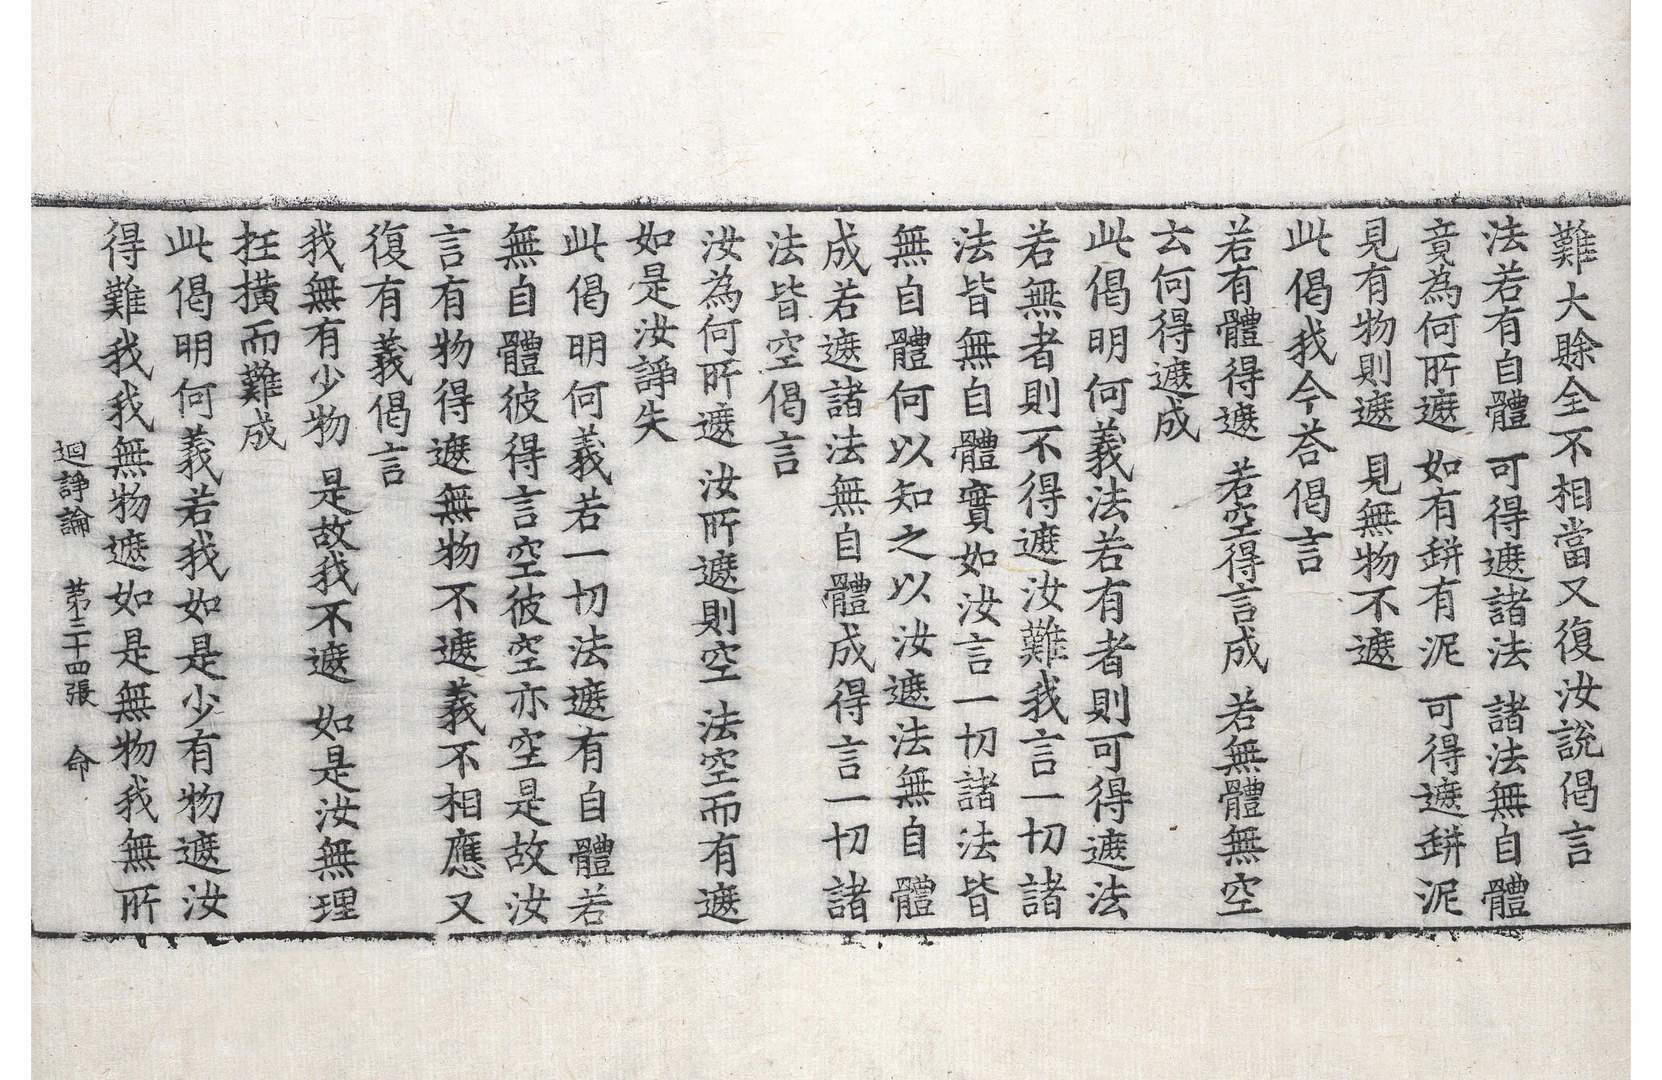 難大賒全不相當又復汝說偈言
法若有自體 可得遮諸法 諸法無自體
竟為何所遮 如有缾有泥 可得遮缾泥
見有物則遮 見無物不遮
此偈我今荅偈言
若有體得遮 若空得言成 若無體無空
云何得遮成
此偈明何義法若有者則可得遮法
若無者則不得遮汝難我言一切諸
法皆無自體實如汝言一切諸法皆
無自體何以知之以汝遮法無自體
成若遮諸法無自體成得言一切諸
法皆空偈言
汝為何所遮 汝所遮則空 法空而有遮
如是汝諍失
此偈明何義若一切法遮有自體若
無自體彼得言空彼空亦空是故汝
言有物得遮無物不遮義不相應又
復有義偈言
我無有少物 是故我不遮 如是汝無理
抂橫而難成
此偈明何義若我如是少有物遮汝
得難我我無物遮如是無物我無所
迴諍論 第三十四張 命